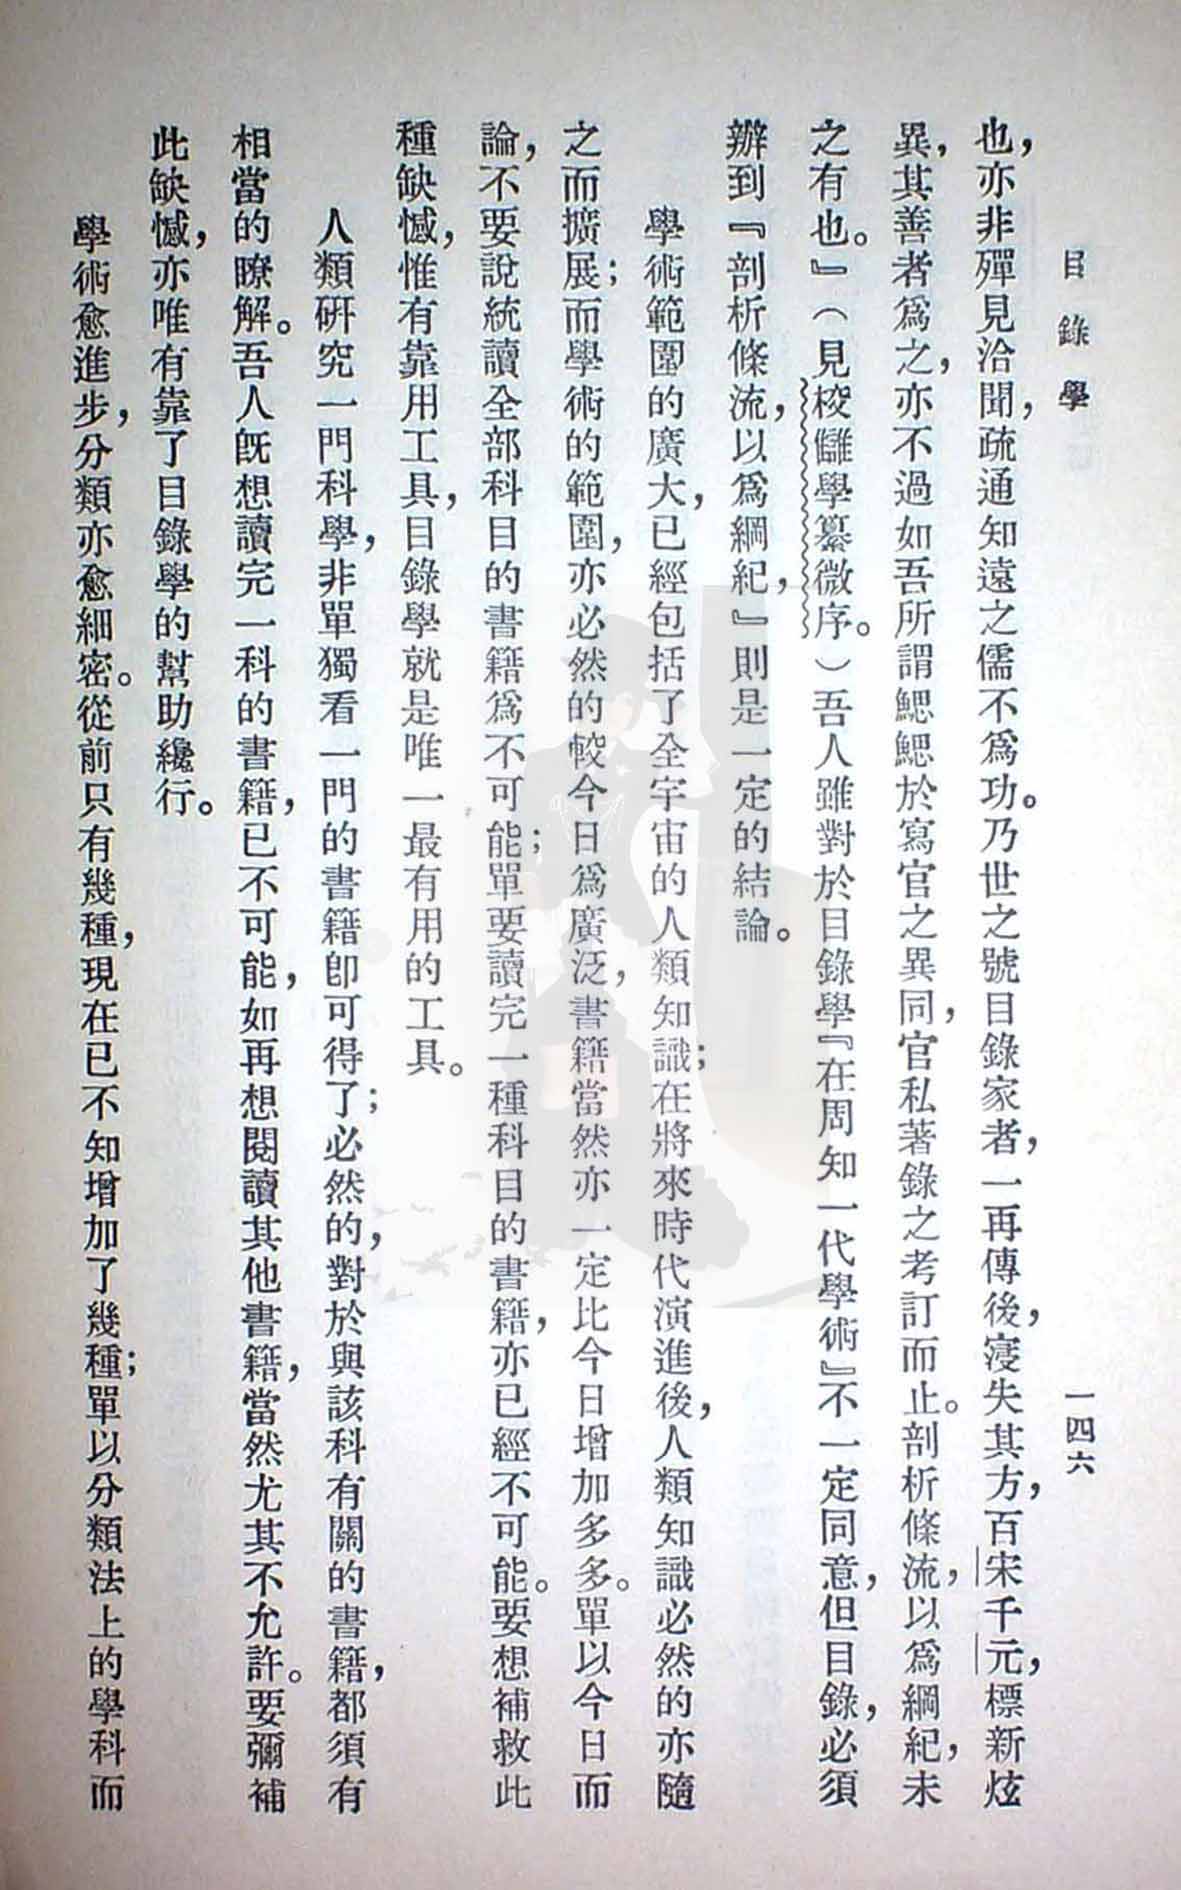 目錄學
一四六
也，亦非殫見洽聞，疏通知遠之儒不爲功。乃世之號目錄家者，一再傳後，寖失其方，百宋千元，標新炫
異，其善者爲之，亦不過如吾所謂鰓鰓於寫官之異同，官私著錄之考訂而止。剖析條流，以爲綱紀，未
之有也。』（見校讎學纂微序。）吾人雖對於目錄學『在周知一代學術』不一定同意，但目錄，必須
辦到『剖析條流，以爲綱紀，』則是一定的結論。
學術範圍的廣大，已經包括了全宇宙的人類知識；在將來時代演進後，人類知識必然的亦隨
之而擴展；而學術的範圍，亦必然的較今日爲廣泛，書籍當然亦一定比今日增加多多。單以今日而
論，不要說統讀全部科目的書籍爲不可能；單要讀完一種科目的書籍，亦已經不可能。要想補救此
種缺憾，惟有靠用工具，目錄學就是唯一最有用的工具。
人類研究一門科學，非單獨看一門的書籍卽可得了；必然的，對於與該科有關的書籍，都須有
相當的瞭解。吾人旣想讀完一科的書籍，已不可能，如再想閱讀其他書籍，當然尤其不允許。要彌補
此缺憾，亦唯有靠了目錄學的幫助纔行。
學術愈進步，分類亦愈細密。從前只有幾種，現在已不知增加了幾種；單以分類法上的學科而